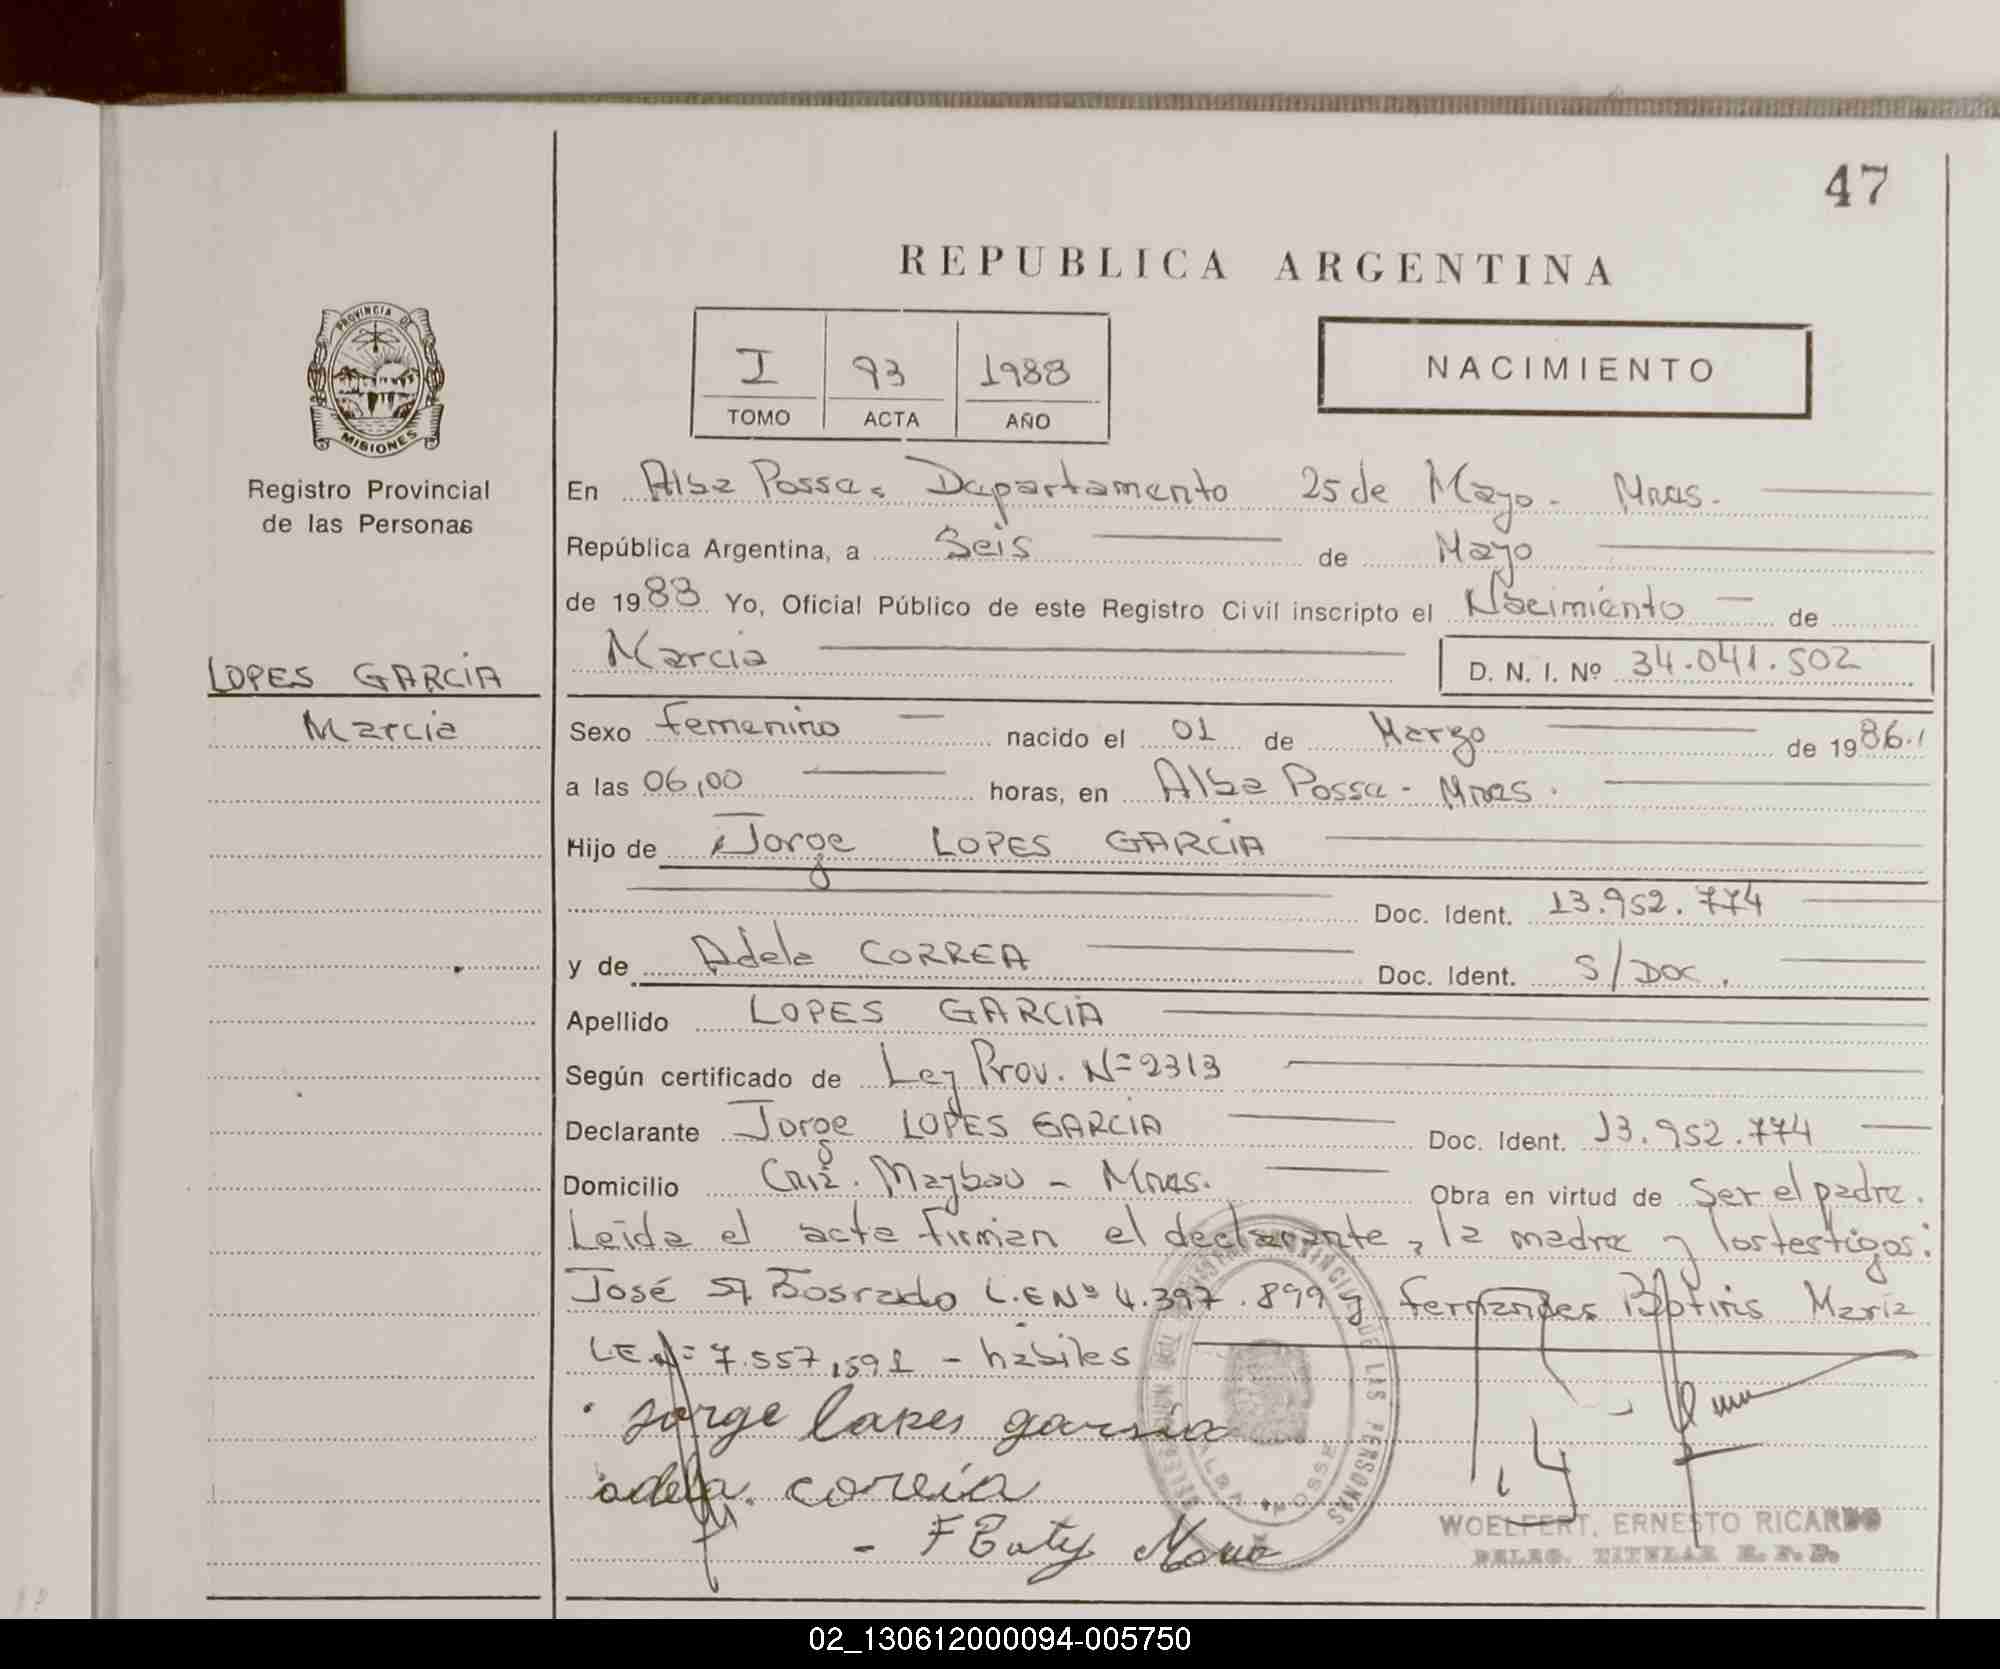 47
REPUBLICA ARGENTINA
I 93 1988
TOMO ACTA AÑO
NACIMIENTO
PROVINCIA DE
MISIONES
Registro Provincial
de las Personas
En Alba Posse. Departamento 25 de Mayo - Mnes.
República Argentina, a Seis de Mayo
de 1988 Yo, Oficial Público de este Registro Civil inscripto el Nacimiento de
Marcia D. N. I. Nº 34.041.502
LOPES GARCIA
Marcia
Sexo Femenino nacido el 01 de Marzo de 1986.
a las 06,00 horas, en Alba Posse - Mnes.
Hijo de Jorge LOPES GARCIA
Doc. Ident. 13.952.774
y de Adela CORREA Doc. Ident. S/Doc.
Apellido LOPES GARCIA
Según certificado de Ley Prov. Nº 2313
Declarante Jorge LOPES GARCIA Doc. Ident. 13.952.774
Domicilio Mnes. Obra en virtud de Ser el padre.
Leida el acta firman el declarante, la madre y los testigos:
José L.E Nº 4.397.899 y Fernandes María
L.E. Nº 7.557.591 - habiles
jorge lopes garsia
adela correia
F
WOELFERT, ERNESTO RICARDO
DELEG. TITULAR R. P. P.
02_130612000094-005750